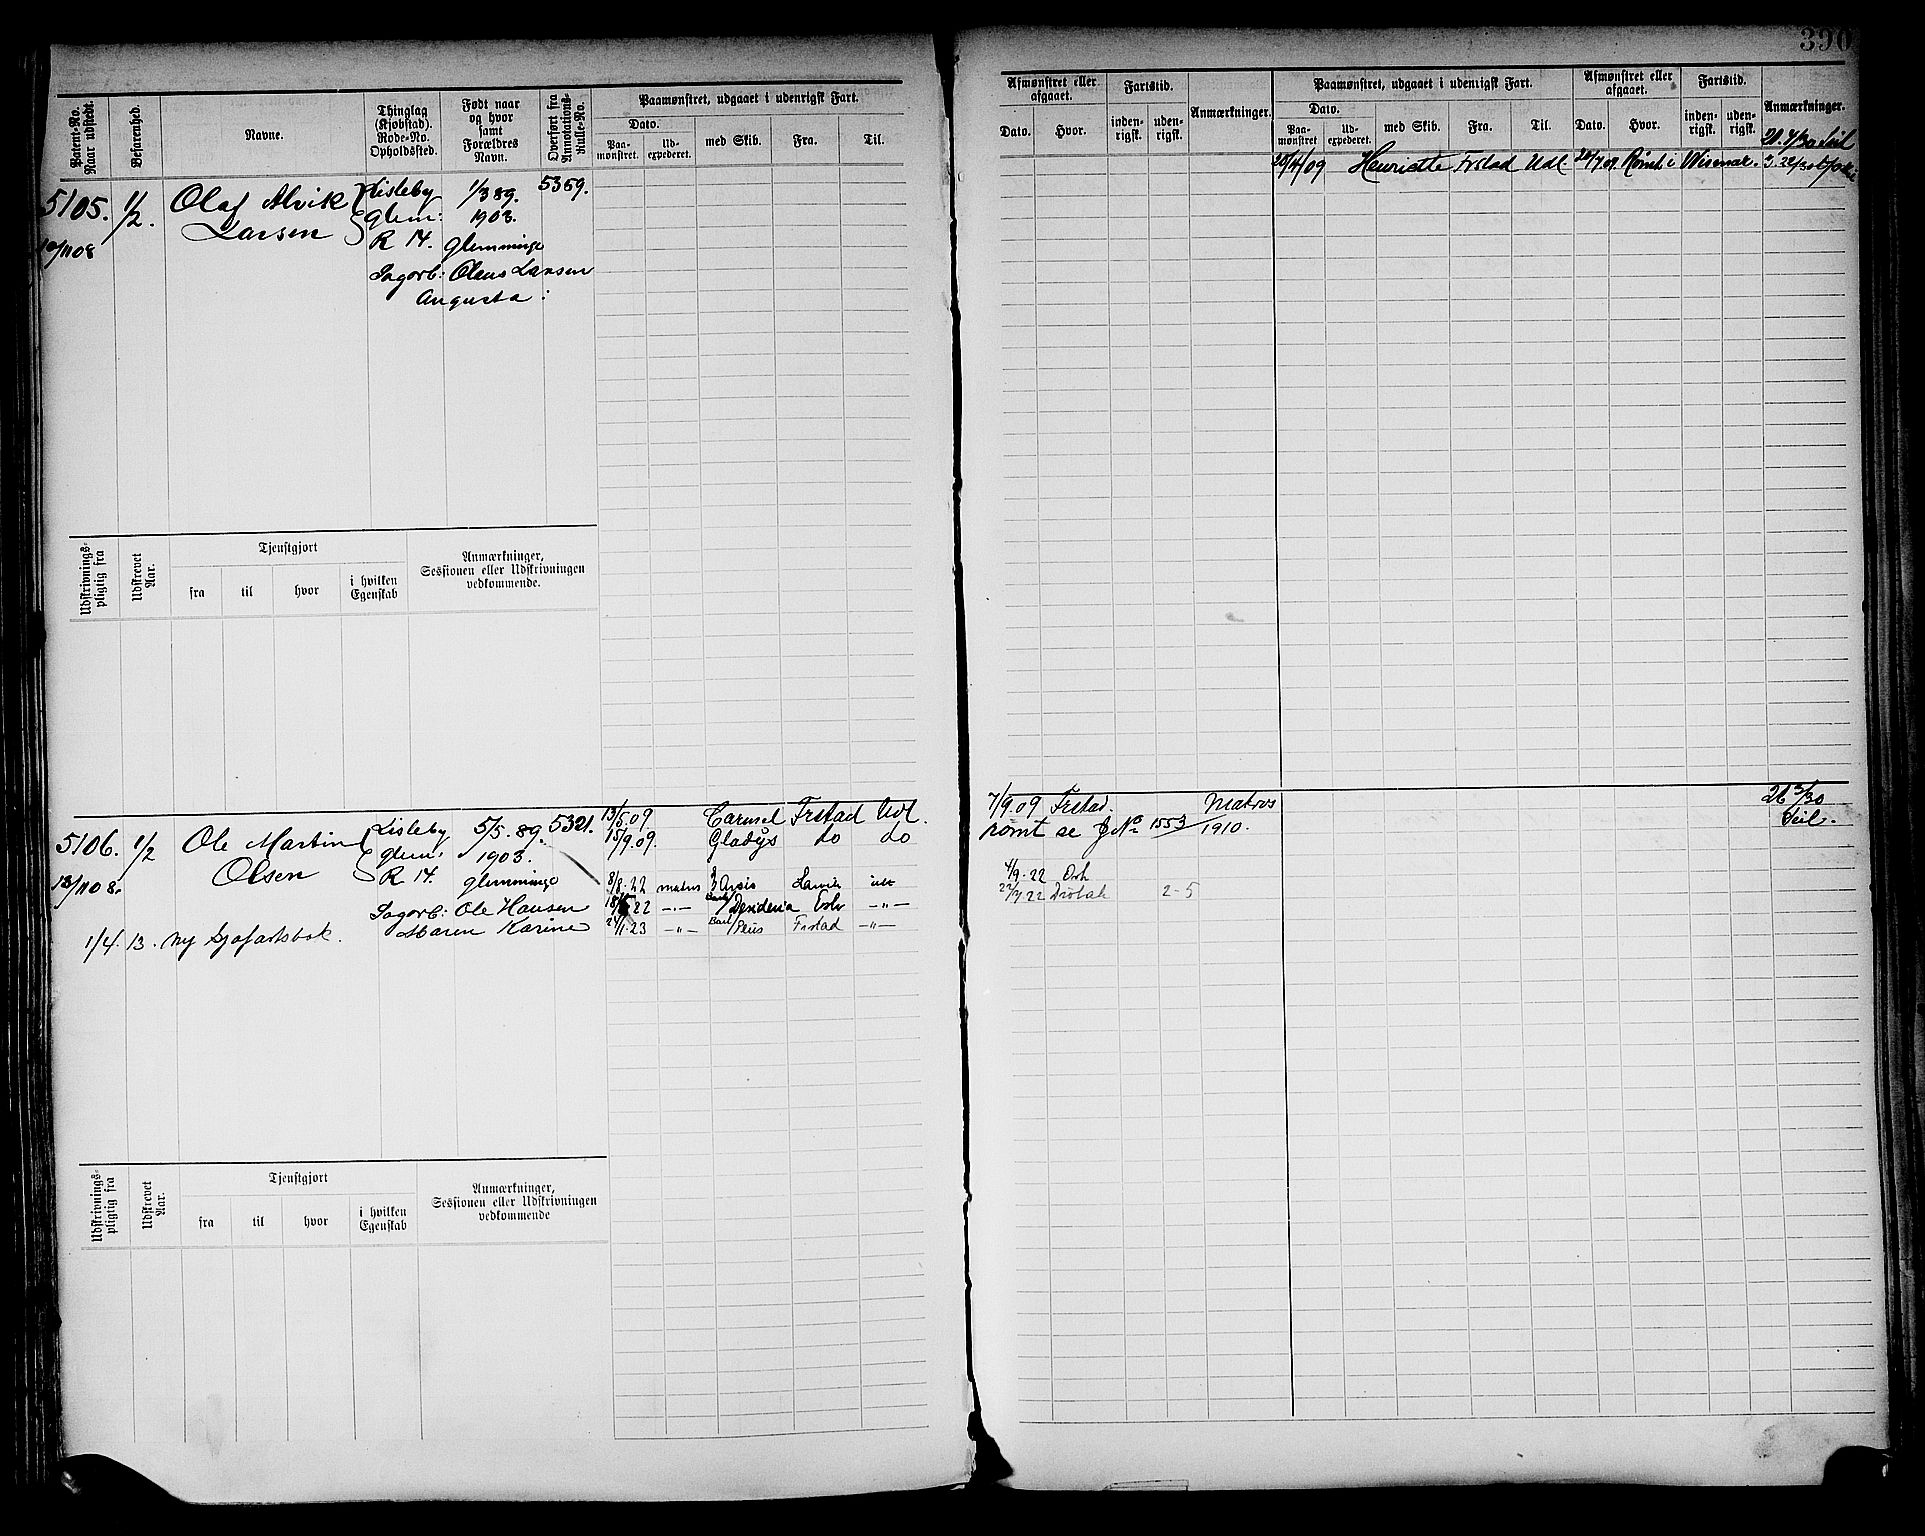 390
Patent-No. Naar udstedt.
Befarenhed.
Navne.
Thinglag (Kjøbstad). Rode-No. Opholdssted.
Født naar og hvor samt Forældres Navn.
Overført fra Annotations-Rulle-No.
Paamønstret, udgaaet i udenrigsk Fart.
Dato.
Paamønstret.
Udexpederet.
med Skib.
Fra.
Til.
Afmønstret eller afgaaet.
Dato.
Hvor.
Fartstid.
indenrigsk.
udenrigsk.
Anmærkninger.
Paamønstret, udgaaet i udenrigsk Fart.
Dato.
Paamønstret
Udexpederet.
med Skib.
Fra.
Til.
Afmønstret eller afgaaet.
Dato.
Hvor.
Fartstid.
indenrigsk.
udenrigsk.
Anmærkninger.
5105. 1/2. Olaf Alvik Lisleby 1/3 89. 5369.
Larsen Glem: 1903.
10/11 08 R 14. Glemminge
Sagarb: Olaus Larsen
Augusta :
/4/09 Henriette Frstad Udl. /7 09 Rømt i Wismar.
Udskrivningspligtig fra
Udskrevet Aar.
Tjenstgjort
fra
til
hvor
i hvilken Egenskab
Anmærkninger, Sessionen eller Udskrivningen vedkommende.
5106. 1/2 Ole Martin Lisleby 5/5. 89. 5321. 13/5.09 Carmel Frstad Udl.
Olsen Glem: 1903. 15/9.09. Gladys do do
13/11 08. R 14. Glemminge 8/8.22 matros Larvik
Sagarb: Ole Hansen 22 -"- Bark Desideria -"-
Maren Karine 24/1.23 -"- Bark Frstad -"-
1/4. 13. Ny Sjøfartsbok.
7/9.09 Frstad. Matros
rømt se J No 1553/1910.
4/9.22
22/9 22 Drøbak 2-5
26 3/30
Seil.
Udskrivningspligtig fra
Udskrevet Aar.
Tjenstgjort
fra
til
hvor
i hvilken Egenskab
Anmærkninger, Sessionen eller Udskrivningen vedkommende